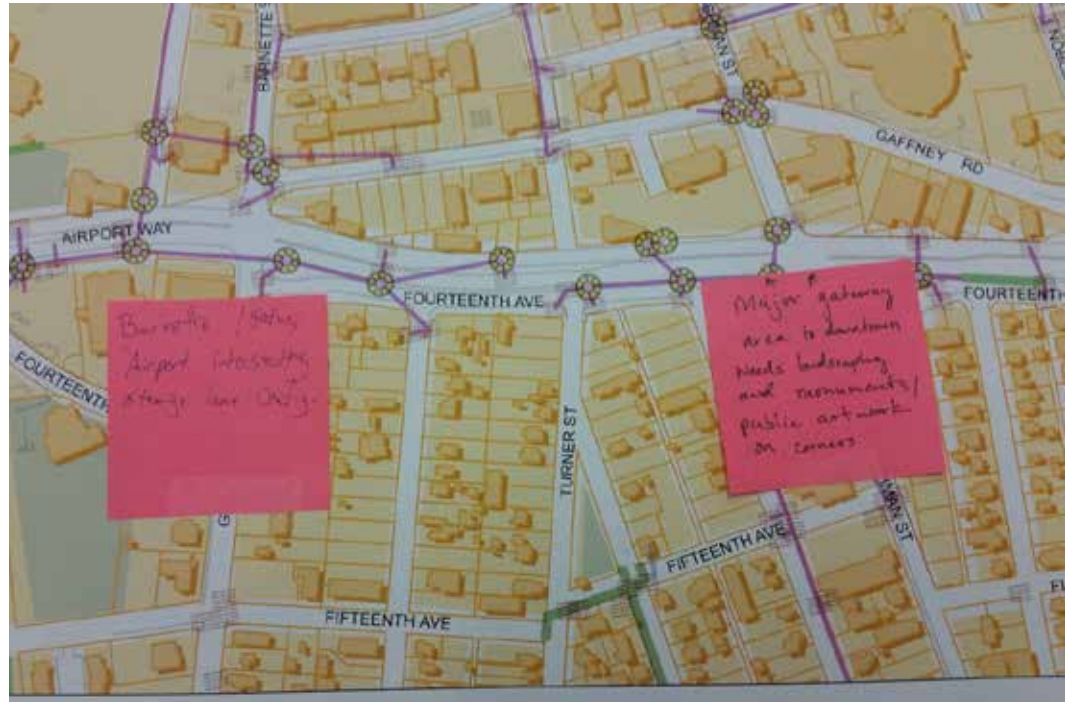 BARNETTE S
MAN ST
T NOBL
GAFFNEY RD
AIRPORT WAY
FOURTEENTH AVE
FOURTEENTH
FOURTEENTH
Barnette /
Airport
strange lane
Major gateway
area to downtown
Needs landscaping
and monuments/
public artwork
on corners
TURNER ST
G
MAN ST
FIFTEENTH AVE
FIFTEENTH AVE
FI